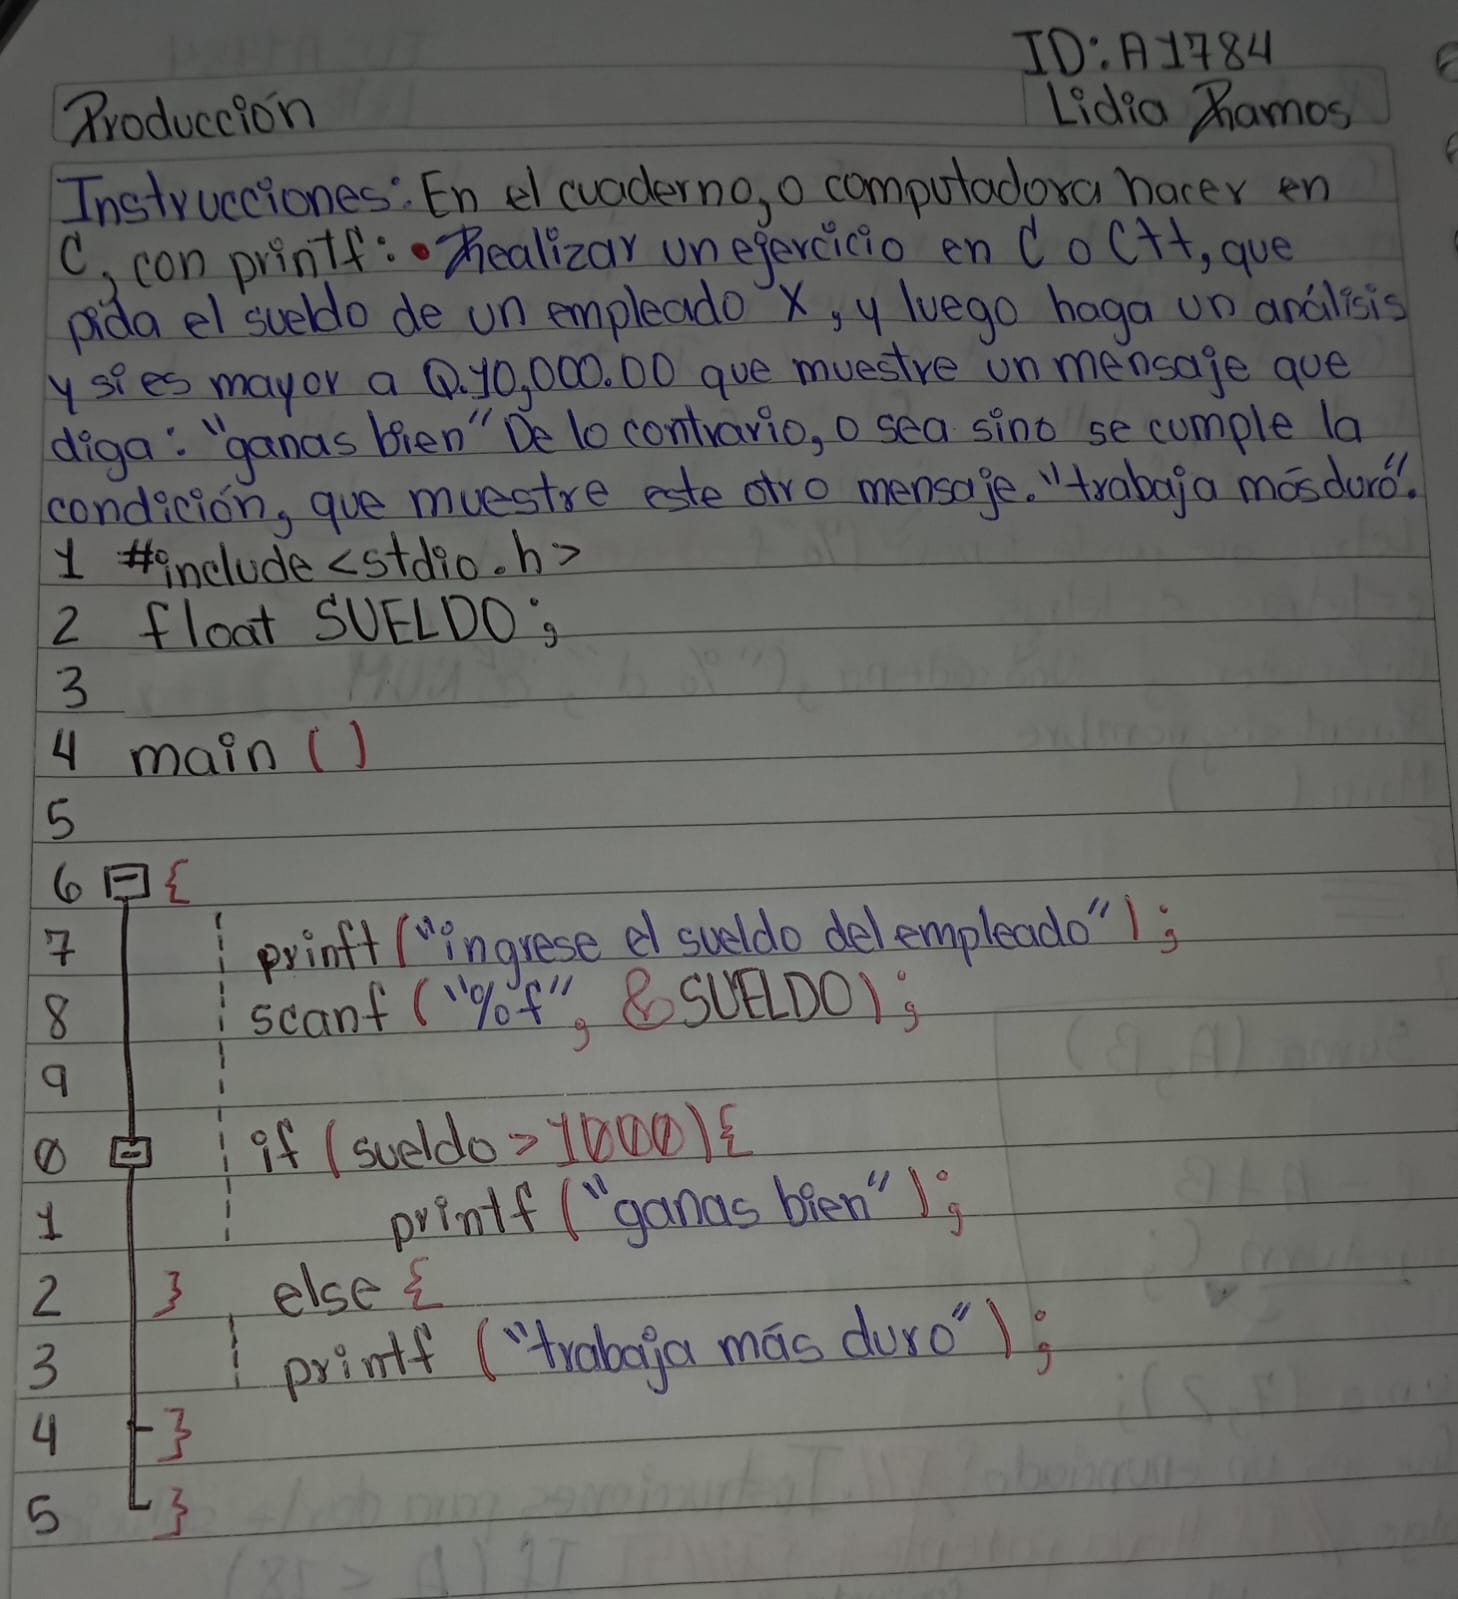 ID: A1784
Producción Lidia Ramos
Instrucciones: En el cuaderno, o computadora hacer en
C, con printf: • Realizar un ejercicio en C o C++, que
pida el sueldo de un empleado X, y luego haga un análisis
y si es mayor a Q.10,000.00 que muestre un mensaje que
diga: "ganas bien" De lo contrario, o sea sino se cumple la
condición, que muestre este otro mensaje. "trabaja más duro".
1 #include <stdio.h>
2 float SUELDO;
3
4 main ()
5
6 {
7 prinft ("ingrese el sueldo del empleado");
8 scanf ("%f", &SUELDO);
9
0 if (sueldo > 1000){
1 printf ("ganas bien");
2 } else {
3 printf ("trabaja más duro");
4 }
5 }